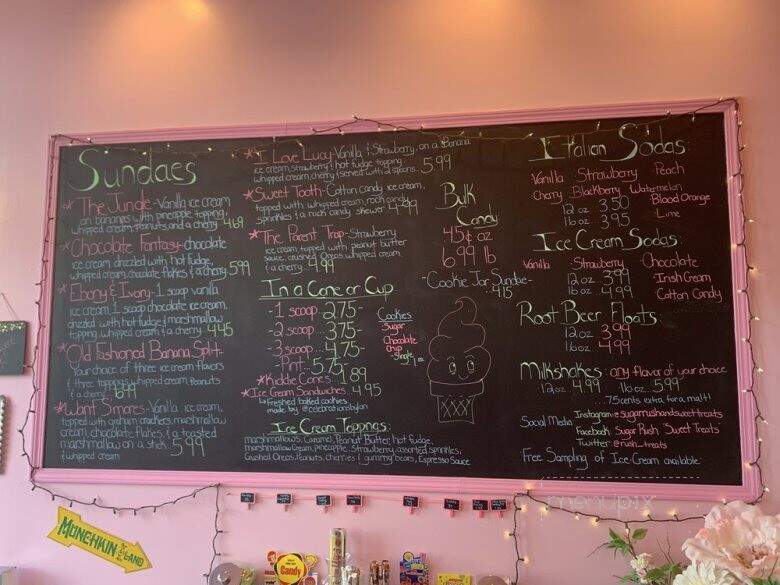 Sundaes
* The Jungle - Vanilla ice cream
on bananas with pineapple topping,
whipped cream, peanuts, and a cherry 4.69
* Chocolate Fantasy - chocolate
ice cream drizzled with hot fudge,
whipped cream, chocolate flakes & a cherry 5.99
* Ebony & Ivory - 1 scoop vanilla
ice cream, 1 scoop chocolate ice cream,
drizzled with hot fudge & marshmallow
topping, whipped cream & a cherry 4.45
* Old Fashioned Banana Split -
Your choice of three ice cream flavors
& three toppings, whipped cream, Peanuts
& cherry 6.99
* Want Smores - Vanilla ice cream,
topped with graham crackers, marshmallow
cream, chocolate flakes, & a toasted
marshmallow on a stick 5.99
& whipped cream
* I Love Lucy - Vanilla & Strawberry on a Banana
ice cream, strawberry & hot fudge topping,
whipped cream, cherry (served with 2 spoons) 5.99
* Sweet Tooth - Cotton Candy ice cream,
topped with whipped cream, rock candy
sprinkles & a rock candy skewer 4.99
* The Parent Trap - Strawberry
ice cream, topped with peanut butter
sauce, crushed Oreos, whipped cream,
& a cherry 4.99
In a Cone or Cup
- 1 scoop... 2.75 -
- 2 scoop... 3.75 -
- 3 scoop... 4.75 -
- Pint... 5.75
* Kiddie Cones - 1.89
* Ice Cream Sandwiches - 4.95
Freshed baked cookies
made by @celebrationsbylan
Cookies
- Sugar
- Chocolate
Chip
- Single
Ice Cream Toppings:
marshmallows, Caramel, Peanut Butter, hot fudge,
marshmallow cream, pineapple, Strawberry, assorted sprinkles,
Crushed Oreos, Peanuts, cherries & gummy bears, Espresso Sauce
Bulk
Candy
45¢ oz
6.99 lb
- Cookie Jar Sundae -
4.15
Italian Sodas
Vanilla Strawberry Peach
Cherry Blackberry Watermelon
12 oz 3.50 Blood Orange
16 oz 3.95 Lime
Ice Cream Sodas
Vanilla Strawberry Chocolate
12 oz 3.99 Irish Cream
16 oz 4.99 Cotton Candy
Root Beer Floats
12 oz 3.99
16 oz 4.99
Milkshakes: any flavor of your choice
12 oz 4.99 16 oz 5.99
...75 cents extra for a malt!
Social Media Instagram @ sugarrushandsweettreats
Facebook Sugar Rush Sweet Treats
Twitter @rush_treats
Free Sampling of Ice Cream available
menupix
MUNCHKIN LAND
Candy